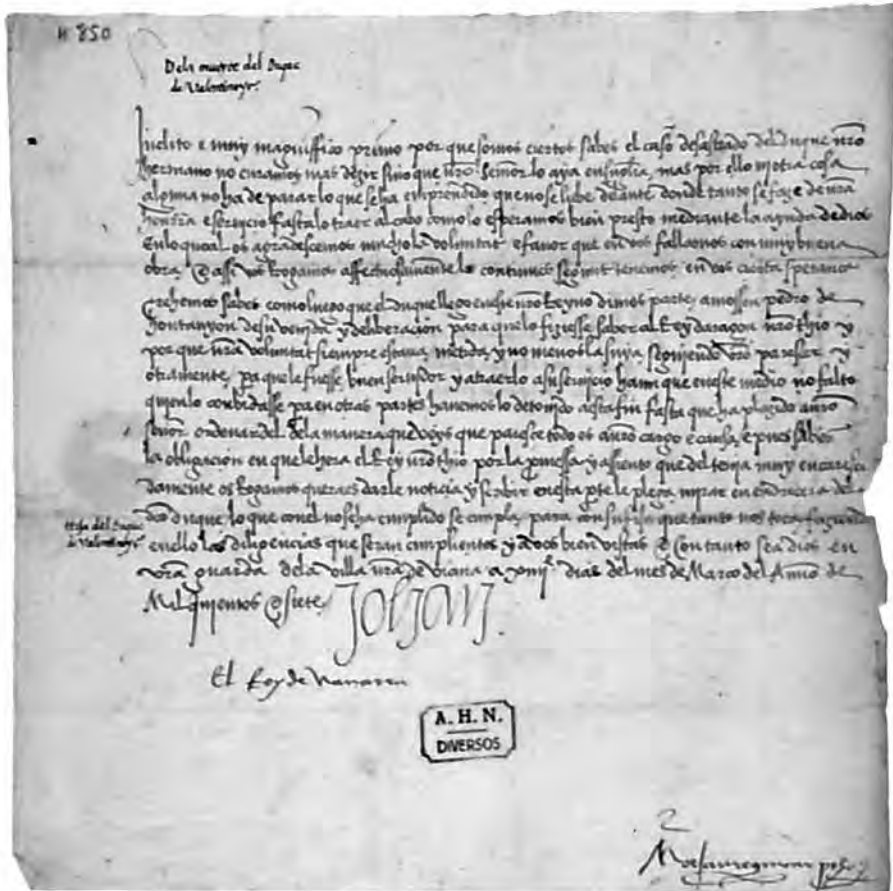 # 850
Dela muerte del Duque
de Valentinoys.
Inclito e muy magniffico primo por que somos ciertos sabes el caso desastrado del Duque nro
hermano no curamos mas dezir sino que nro Señor lo aya en su gloria, mas por ello ni otra cosa
alguna no ha de parar lo que se ha emprendido que no se liebe delante donde tanto se faze de nra
honrra e servicio fasta lo traer al cabo como lo esperamos bien presto mediante la ayuda de dios
En lo qual os agradescemos mucho la voluntat e favor que en vos fallamos con muy buena
obra, E assi vos Rogamos affectuosamente lo continues segunt tenemos en vos cierta sperança
Crehemos sabes como luego que el Duque llego en este nro Reyno dimos parte, a mossen pedro de
hontanyon de su venida, y deliberacion para que lo fiziesse saber al Rey daragon nro thio y
por que nra voluntat siempre estava, metida, y no menos la suya, seguiendo vro parescer y
otramente, pa que le fuesse buen servidor y atraerlo a su servicio haun que en este medio no falto
quien lo conbidasse pa en otras partes havemos lo detenido a esta fin fasta que ha plazido a nro
señor ordenar del dela manera que voys que paresce todo es a nro cargo e causa, e pues sabes
la obligacion en que le hera el Rey nro thio por la promessa y asiento que del tenia muy encaresci
damente os Rogamos queraes darle noticia y screbir en esta parte le plega mirar en endreceria del
dicho duque lo que con el no se ha cumplido se cumpla, para con su fija que tanto nos toca, faziendo
Hija del Duque
de Valentinoys
en ello las diligencias que seran cumplientes y a vos bien vistas E Con tanto sea dios en
vra guarda de la villa nra de Viana a xiiii dias del mes de Marco del Anno de
Mil quinientos E siete
Johan
El Rey de Navarra
A. H. N.
DIVERSOS